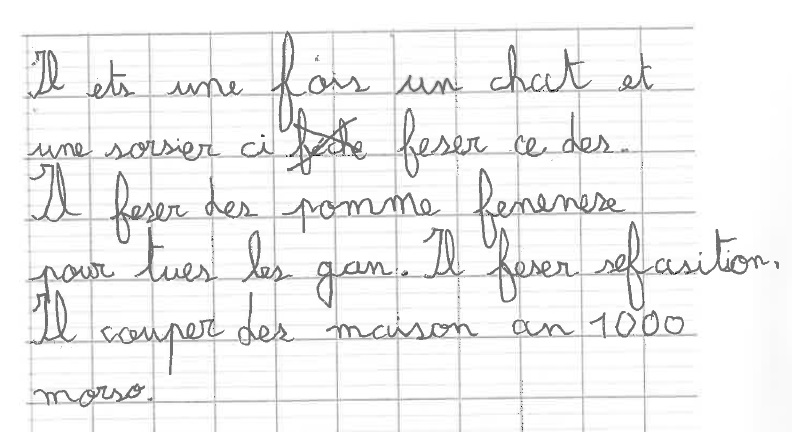 Il ets une fois un chat et
une sorsier ci feser ce des.
Il feser des pomme fenenese
pour tues les gan. Il feser sefasition.
Il couper des maison an 1000
morso.